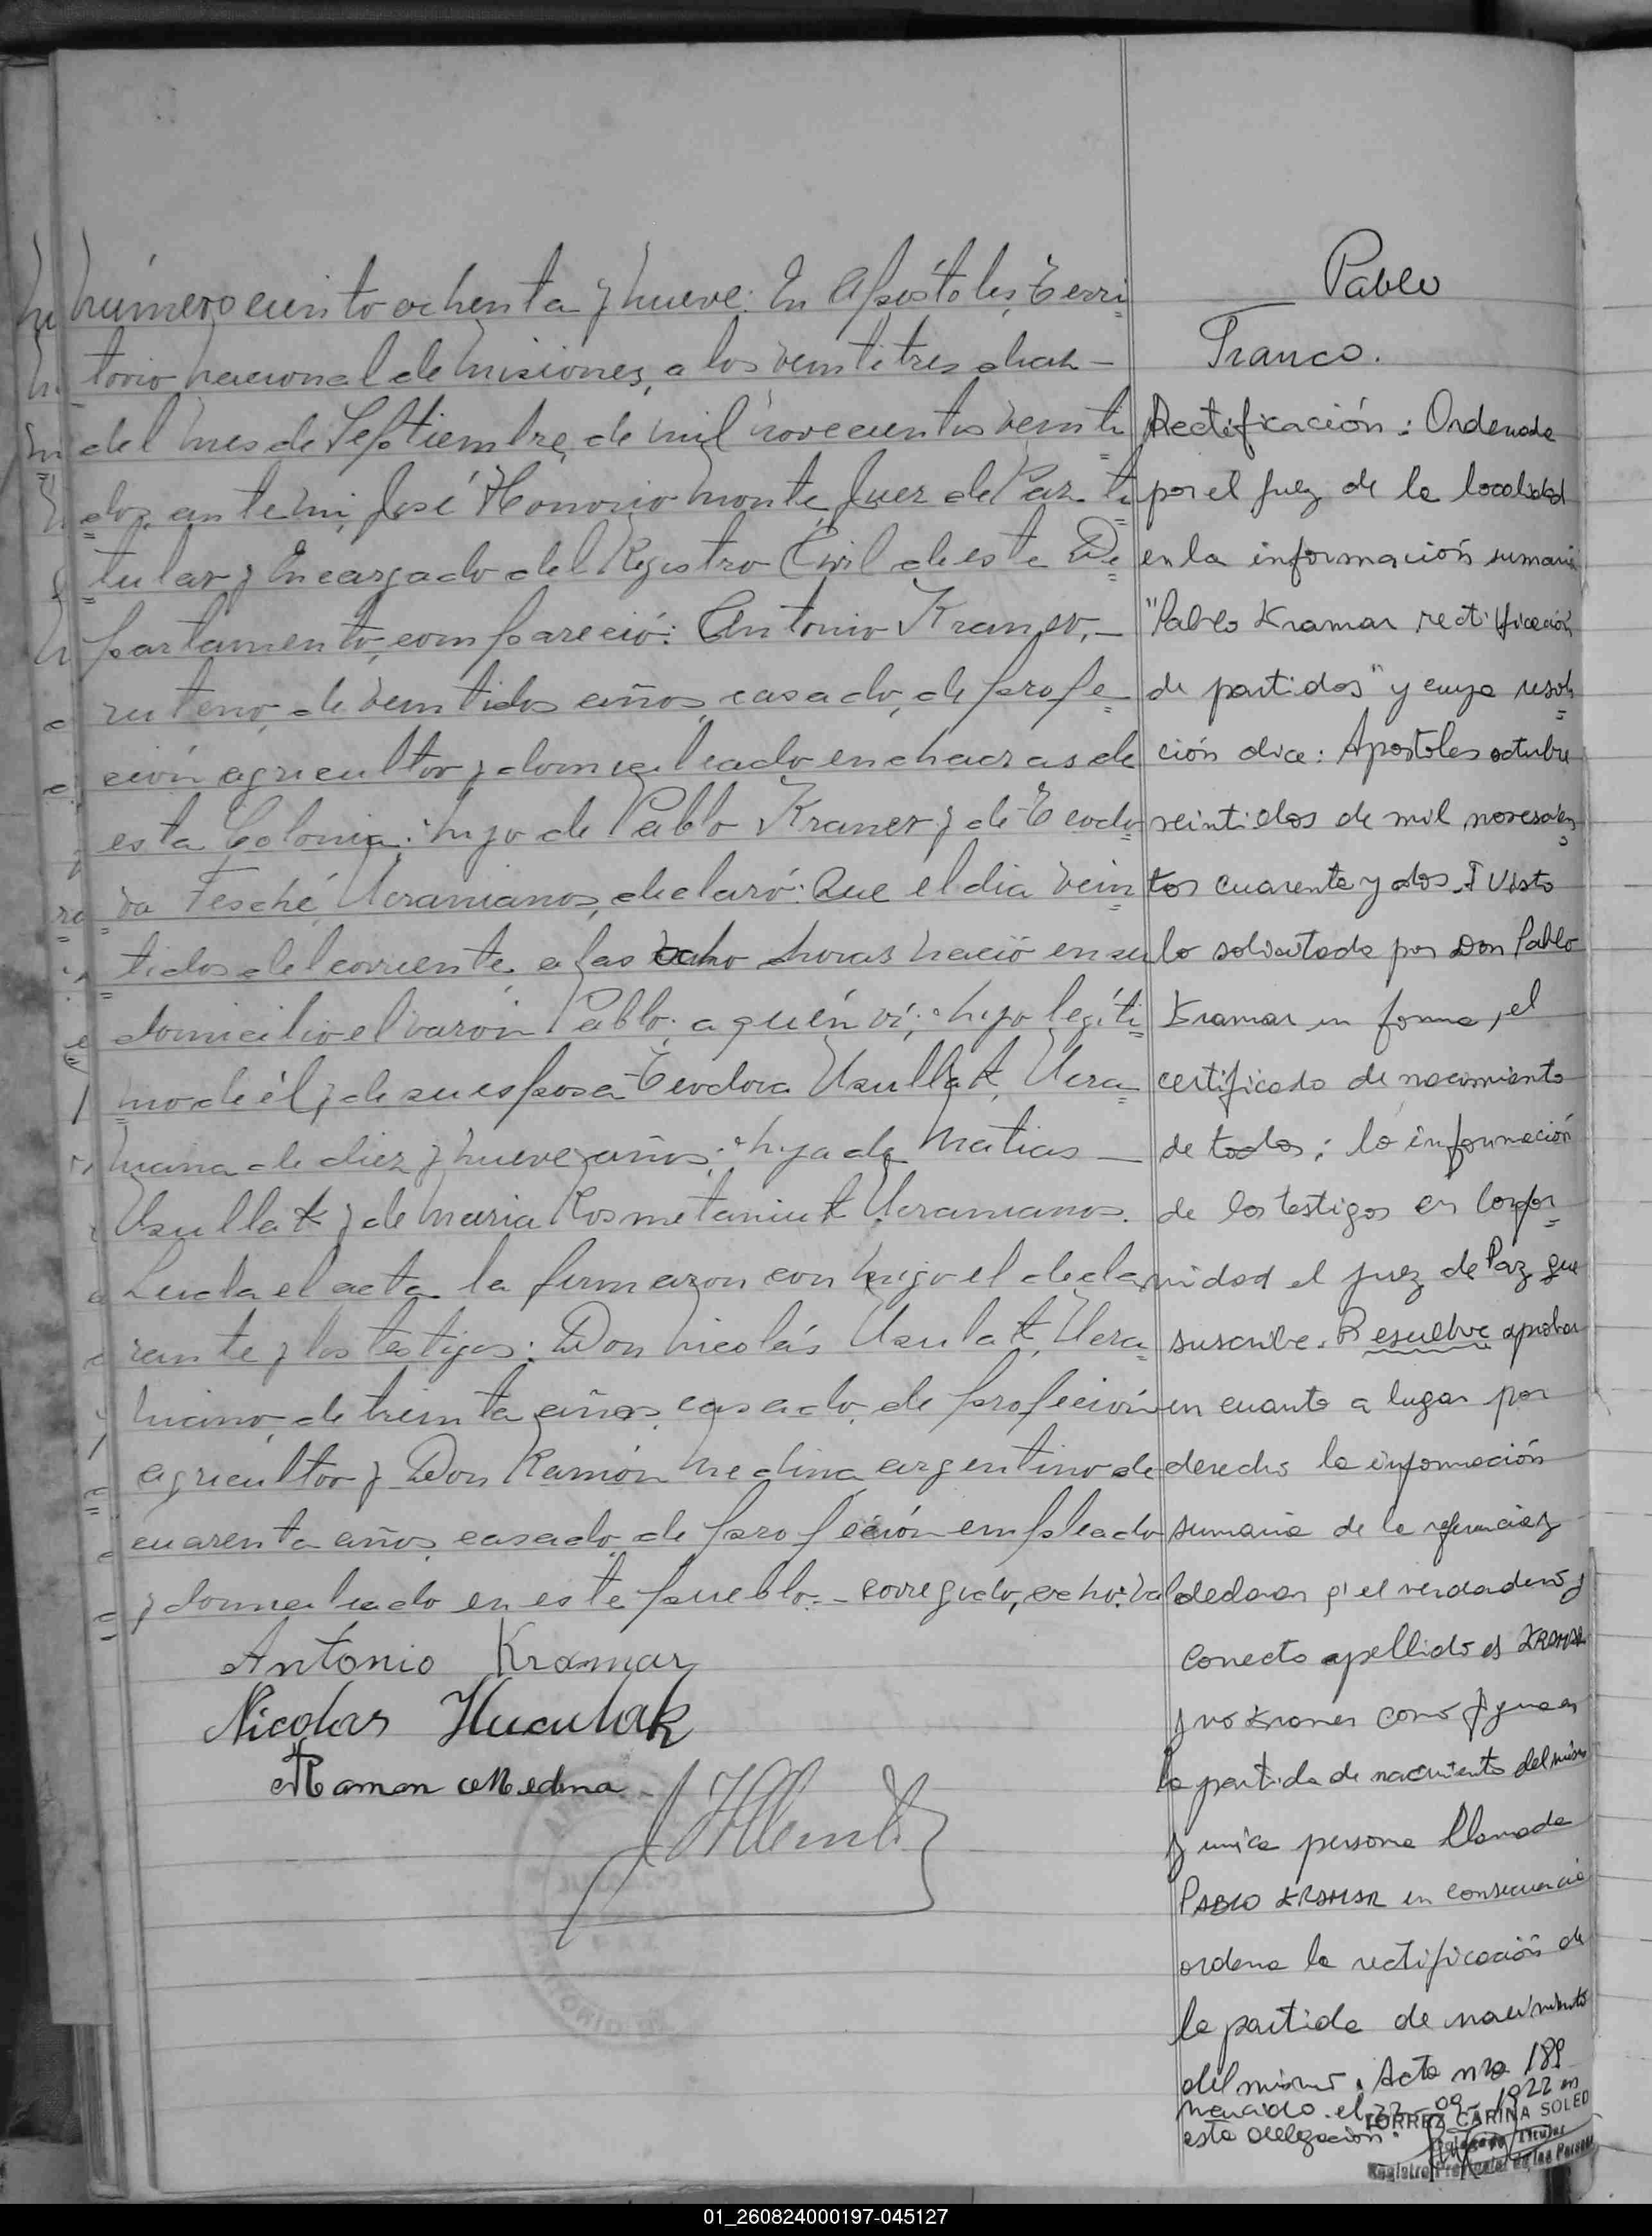 número ciento ochenta y nueve: En Apóstoles, Terri=
torio nacional de Misiones, a los veintitres dias
del mes de Septiembre, de mil novecientos veinti=
dos, ante mi, José Honorio Monte, Juez de Paz ti=
tular y Encargado del Registro Civil de este De=
partamento, compareció: Antonio
ruteno, de veintidos años, casado, de profe=
ción agricultor y domiciliado en chacras de
esta Colonia: hijo de Pablo Kraner y de Teodo
ra Fesché, Ucranianos, declaró: Que el dia vein=
tidos del corriente, a las ocho horas nació en su
domicilio el varón Pablo, a quién ví; hijo legíti=
mo de él y de su esposa Teodora Usullak, Ucra=
niana de diez y nueve años; hija de Matias
Usullak y de Maria Kosmetaniuk Ucranianos.
Leida el acta la firmaron conmigo el decla
rante y los testigos: Don Nicolás Usulak, Ucra=
niano, de treinta años, casado, de profeción
agricultor y Don Ramón Medina, argentino de
cuarenta años, casado, de profeción empleado
y domiciliado en este pueblo.- corregido, ocho: val
Antonio Kramar
Nicolas Huculak
Ramon Medina
Pablo
Rectificación: Ordenada
por el juez de la localidad
en la información sumaria
"Pablo Kramar rectificación
de partidas" y cuya resolu=
ción dice: Apostoles octubre
veintidos de mil novescien=
tos cuarenta y dos. Y Visto
lo solicitado por Don Pablo
Kramar en forma, el
certificado de nacimiento
de todos; la información
de los testigos en confor=
midad el juez de Paz que
suscribe. Resuelve aprobar
en cuanto a lugar por
derecho la información
sumaria de la referencia y
declarar q' el verdadero y
correcto apellido es KRAMAR
y no Kraner como figura en
la partida de nacimiento del mismo
y unica persona llamada
PABLO KRAMAR en consecuencia
ordena la rectificación de
la partida de nacimiento
del mismo. Acta nro 189
nacido el 22-09-1922 en
esta delegación.
TORREZ CARINA SOLED
Delegada Titular
Registro Provincial de las Personas
01_260824000197-045127